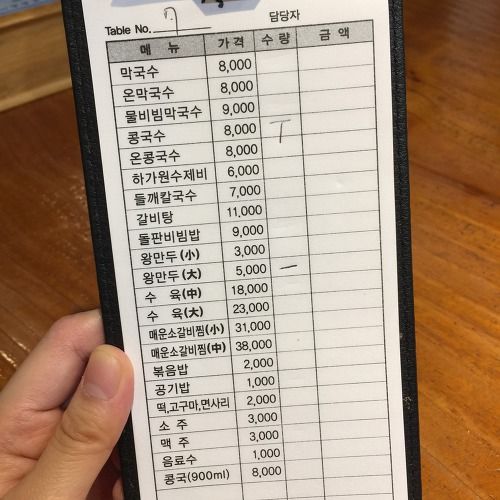 Table No. 7 담당자
메 뉴 가 격 수 량 금 액
막국수 8,000
온막국수 8,000
물비빔막국수 9,000
콩국수 8,000 T
온콩국수 8,000
하가원수제비 6,000
들깨칼국수 7,000
갈비탕 11,000
돌판비빔밥 9,000
왕만두(小) 3,000
왕만두(大) 5,000 一
수 육(中) 18,000
수 육(大) 23,000
매운소갈비찜(小) 31,000
매운소갈비찜(中) 38,000
볶음밥 2,000
공기밥 1,000
떡,고구마,면사리 2,000
소 주 3,000
맥 주 3,000
음료수 1,000
콩국(900ml) 8,000